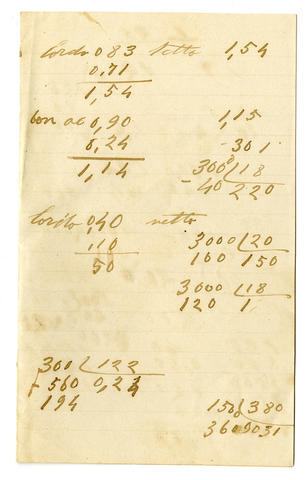 Lordo 0,83 Netto 1,54
0,71
1,54
0,90 1,15
0,24 -301
1,14 3000 18
-40 220
Lordo 0,40 netto
110 3000 20
50 160 150
3000 18
120 1
300 122
- 560 0,24
194
150 380
360 9031